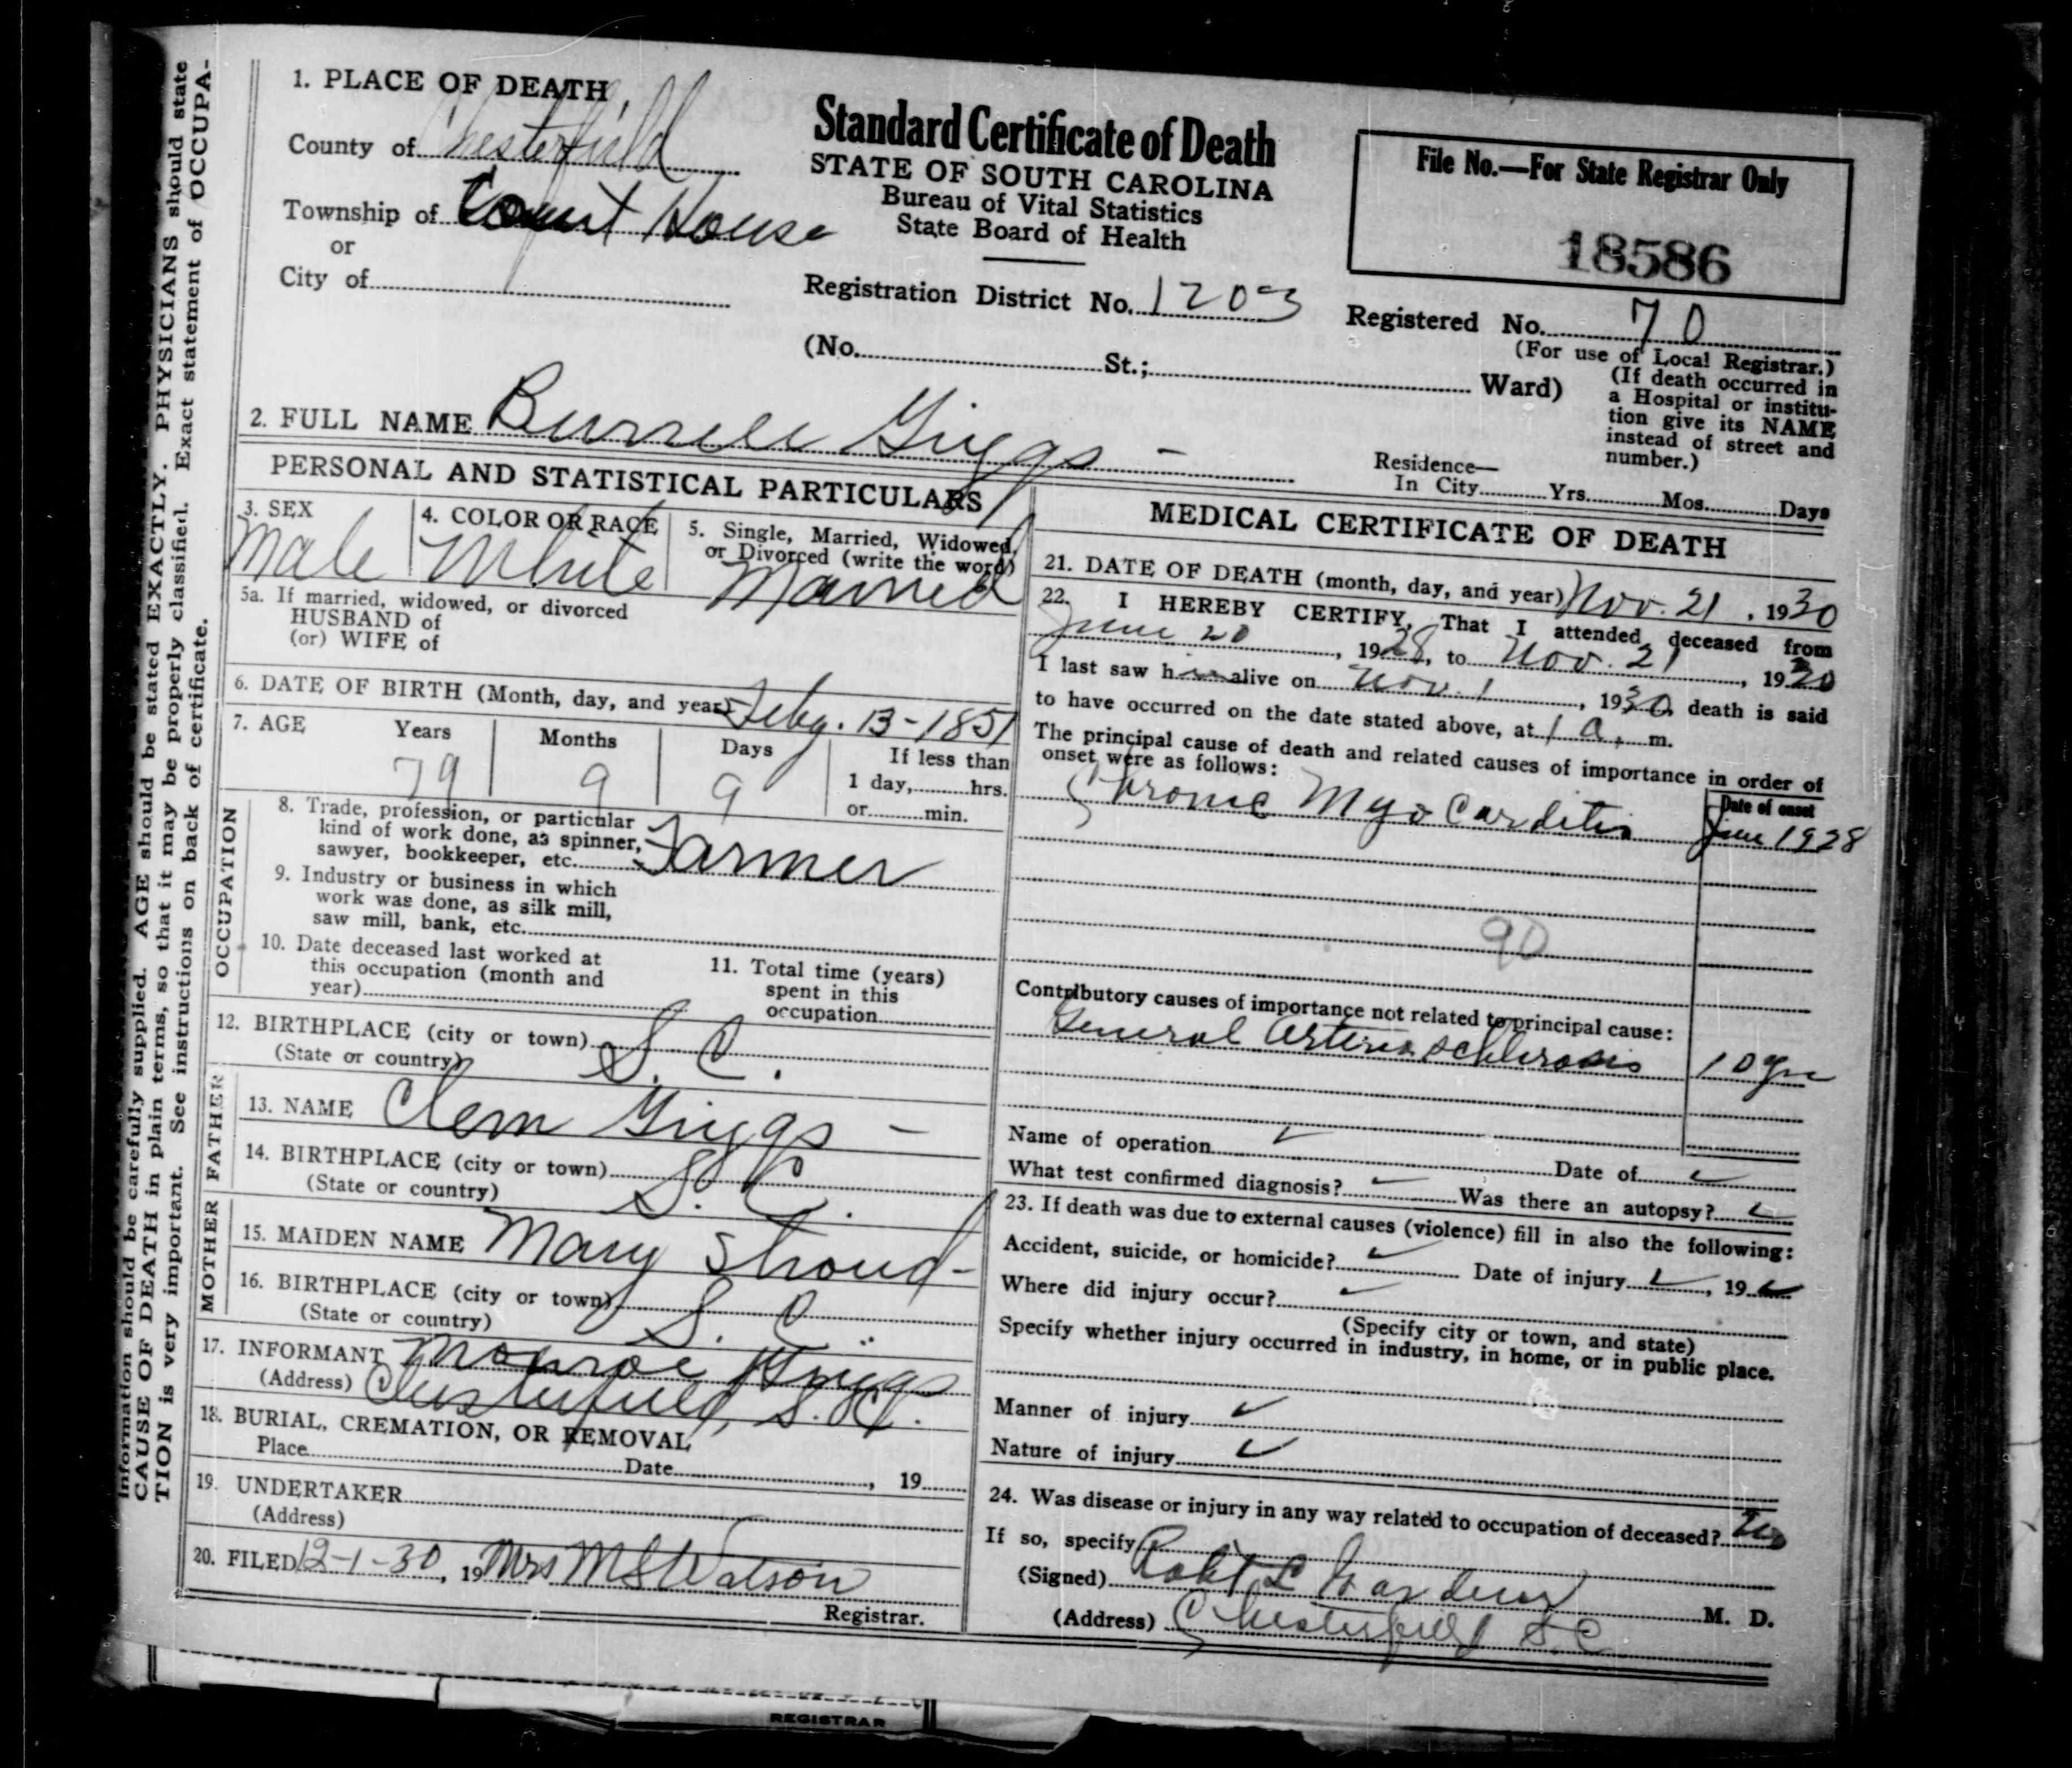 information should be carefully supplied. AGE should be stated EXACTLY. PHYSICIANS should state
CAUSE OF DEATH in plain terms, so that it may be properly classified. Exact statement of OCCUPA-
TION is very important. See instructions on back of certificate.
1. PLACE OF DEATH
County of Chesterfield
Township of Court House
or
City of
Standard Certificate of Death
STATE OF SOUTH CAROLINA
Bureau of Vital Statistics
State Board of Health
File No.—For State Registrar Only
18586
Registration District No. 1203
Registered No. 70
(For use of Local Registrar.)
(No. St.; Ward)
(If death occurred in
a Hospital or institu-
tion give its NAME
instead of street and
number.)
2. FULL NAME Burrell Griggs -
Residence—
In City Yrs. Mos. Days
PERSONAL AND STATISTICAL PARTICULARS
3. SEX
Male
4. COLOR OR RACE
White
5. Single, Married, Widowed,
or Divorced (write the word)
Married
5a. If married, widowed, or divorced
HUSBAND of
(or) WIFE of
6. DATE OF BIRTH (Month, day, and year) Feby. 13-1851
7. AGE Years Months Days If less than
79 9 9 1 day, hrs.
or min.
OCCUPATION
8. Trade, profession, or particular
kind of work done, as spinner,
sawyer, bookkeeper, etc. Farmer
9. Industry or business in which
work was done, as silk mill,
saw mill, bank, etc.
10. Date deceased last worked at
this occupation (month and
year)
11. Total time (years)
spent in this
occupation
12. BIRTHPLACE (city or town) S. C.
(State or country)
FATHER
13. NAME Clem Griggs -
14. BIRTHPLACE (city or town) S. C.
(State or country)
MOTHER
15. MAIDEN NAME Mary Stroud-
16. BIRTHPLACE (city or town) S. C.
(State or country)
17. INFORMANT Monroe Griggs
(Address) Chesterfield, S. C.
18. BURIAL, CREMATION, OR REMOVAL
Place Date , 19
19. UNDERTAKER
(Address)
20. FILED 12-1-30, 19 Mrs M S Watson
Registrar.
MEDICAL CERTIFICATE OF DEATH
21. DATE OF DEATH (month, day, and year) Nov. 21, 1930
22. I HEREBY CERTIFY, That I attended deceased from
June 20, 1928, to Nov. 21, 1930
I last saw him alive on Nov. 1, 1930, death is said
to have occurred on the date stated above, at 1 a. m.
The principal cause of death and related causes of importance in order of
onset were as follows:
Date of onset
Chronic Myo Carditis June 1928
90
Contributory causes of importance not related to principal cause:
General Arterio schlerosis 10 yrs
Name of operation ✓ Date of ✓
What test confirmed diagnosis? ✓ Was there an autopsy? ✓
23. If death was due to external causes (violence) fill in also the following:
Accident, suicide, or homicide? ✓ Date of injury ✓, 19 ✓
Where did injury occur? ✓
(Specify city or town, and state)
Specify whether injury occurred in industry, in home, or in public place.
Manner of injury ✓
Nature of injury ✓
24. Was disease or injury in any way related to occupation of deceased? No
If so, specify
(Signed) Robt L Gardner M. D.
(Address) Chesterfield S.C
REGISTRAR